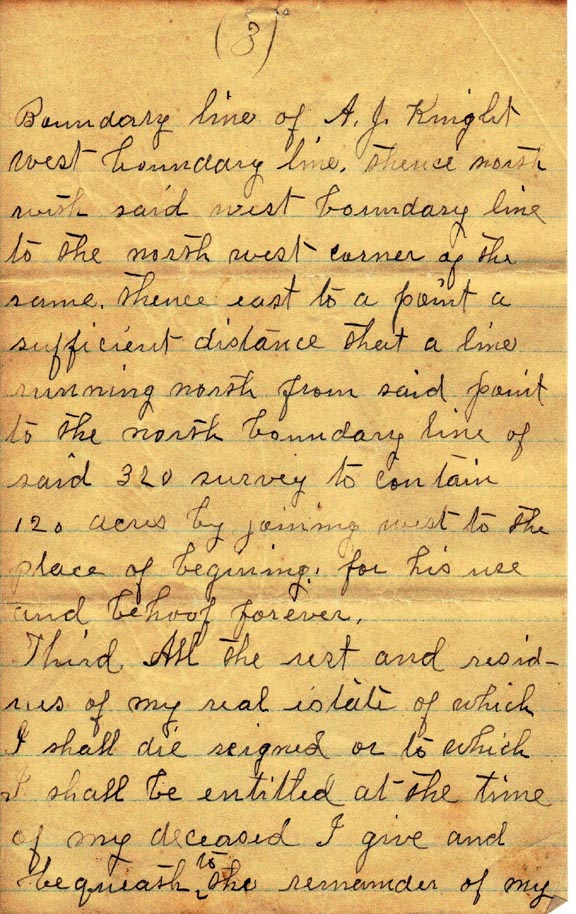 (3)
Boundary line of A. J. Knight
west boundary line, thence north
with said west boundary line
to the north west corner of the
same, thence east to a point a
sufficient distance that a line
running north from said point
to the north boundary line of
said 320 survey to contain
120 acres by joining west to the
place of begining, for his use
and behoof forever.
Third. All the rest and resid-
ues of my real istate of which
I shall die seigned or to which
I shall be entitled at the time
of my deceased I give and
bequeath to the remainder of my